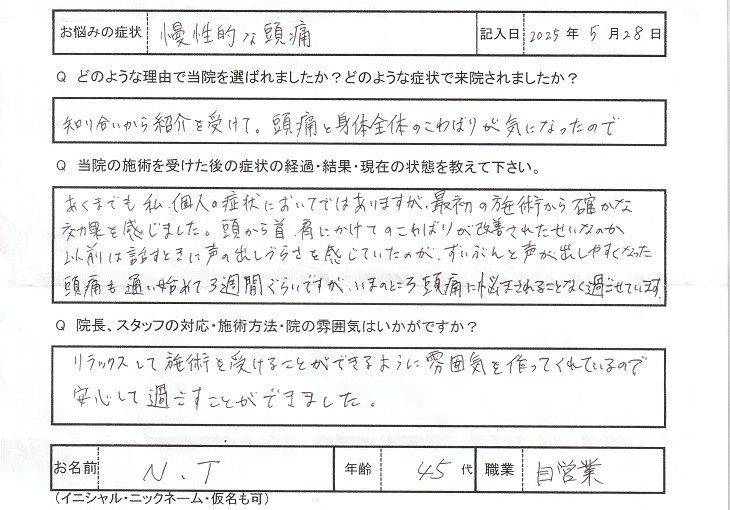 お悩みの症状 慢性的な頭痛 記入日 2025 年 5 月 28 日
Q どのような理由で当院を選ばれましたか？どのような症状で来院されましたか？
知り合いから紹介を受けて。頭痛と身体全体のこわばりが気になったので
Q 当院の施術を受けた後の症状の経過・結果・現在の状態を教えて下さい。
あくまでも私、個人の症状においてではありますが、最初の施術から確かな
効果を感じました。頭から首、肩にかけてのこわばりが改善されたせいなのか
以前は話すときに声の出しづらさを感じていたのが、ずいぶんと声が出しやすくなった
頭痛も通い始めて3週間ぐらいですが、いまのところ頭痛に悩まされることなく過ごせています。
Q 院長、スタッフの対応・施術方法・院の雰囲気はいかがですか？
リラックスして施術を受けることができるように雰囲気を作ってくれているので
安心して過ごすことができました。
お名前 N．T 年齢 45 代 職業 自営業
（イニシャル・ニックネーム・仮名も可）